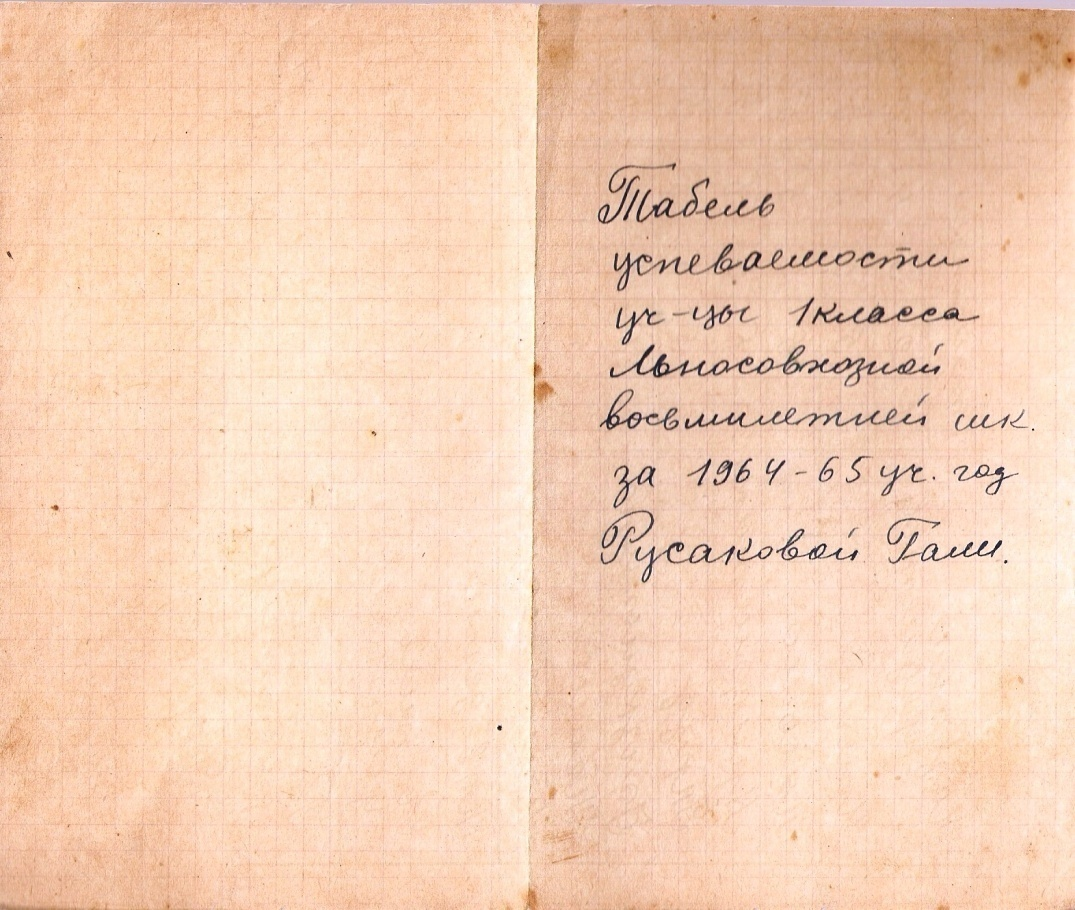 Табель
успеваемости
уч-цы 1 класса
Льносовхозной
восьмилетней шк.
за 1964-65 уч. год
Русаковой Гали.